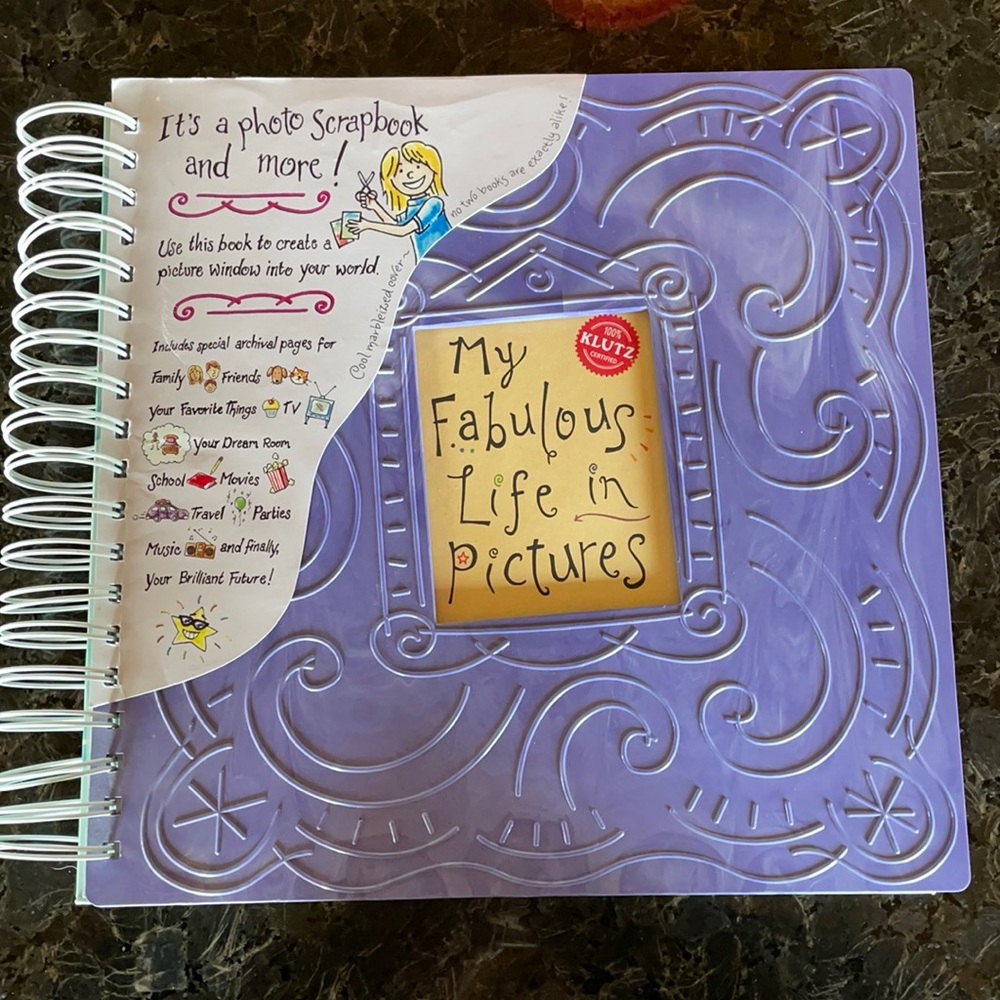 It's a photo Scrapbook
and more!
Use this book to create a
picture window into your world.
Includes special archival pages for
Family Friends
your Favorite Things TV
your Dream Room
School Movies
Travel Parties
Music and finally,
your Brilliant Future!
Cool marbleized cover~
no two books are exactly alike!
100%
KLUTZ
CERTIFIED
My
Fabulous
Life in
Pictures